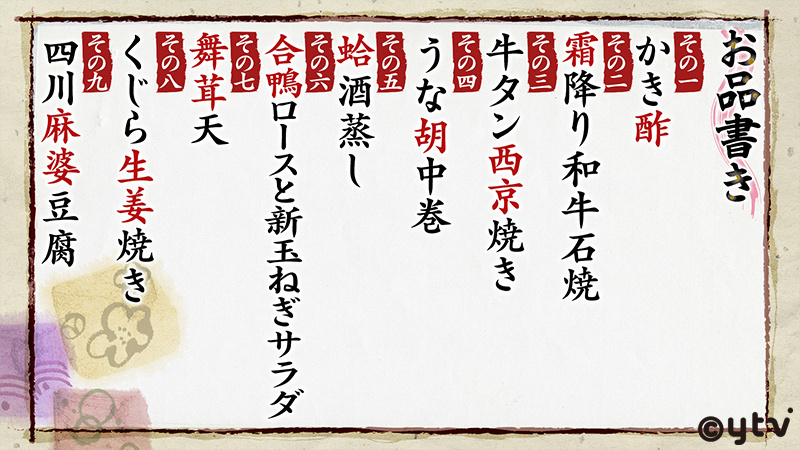 お品書き
その一
かき酢
その二
霜降り和牛石焼
その三
牛タン西京焼き
その四
うな胡中巻
その五
蛤酒蒸し
その六
合鴨ロースと新玉ねぎサラダ
その七
舞茸天
その八
くじら生姜焼き
その九
四川麻婆豆腐
©ytv